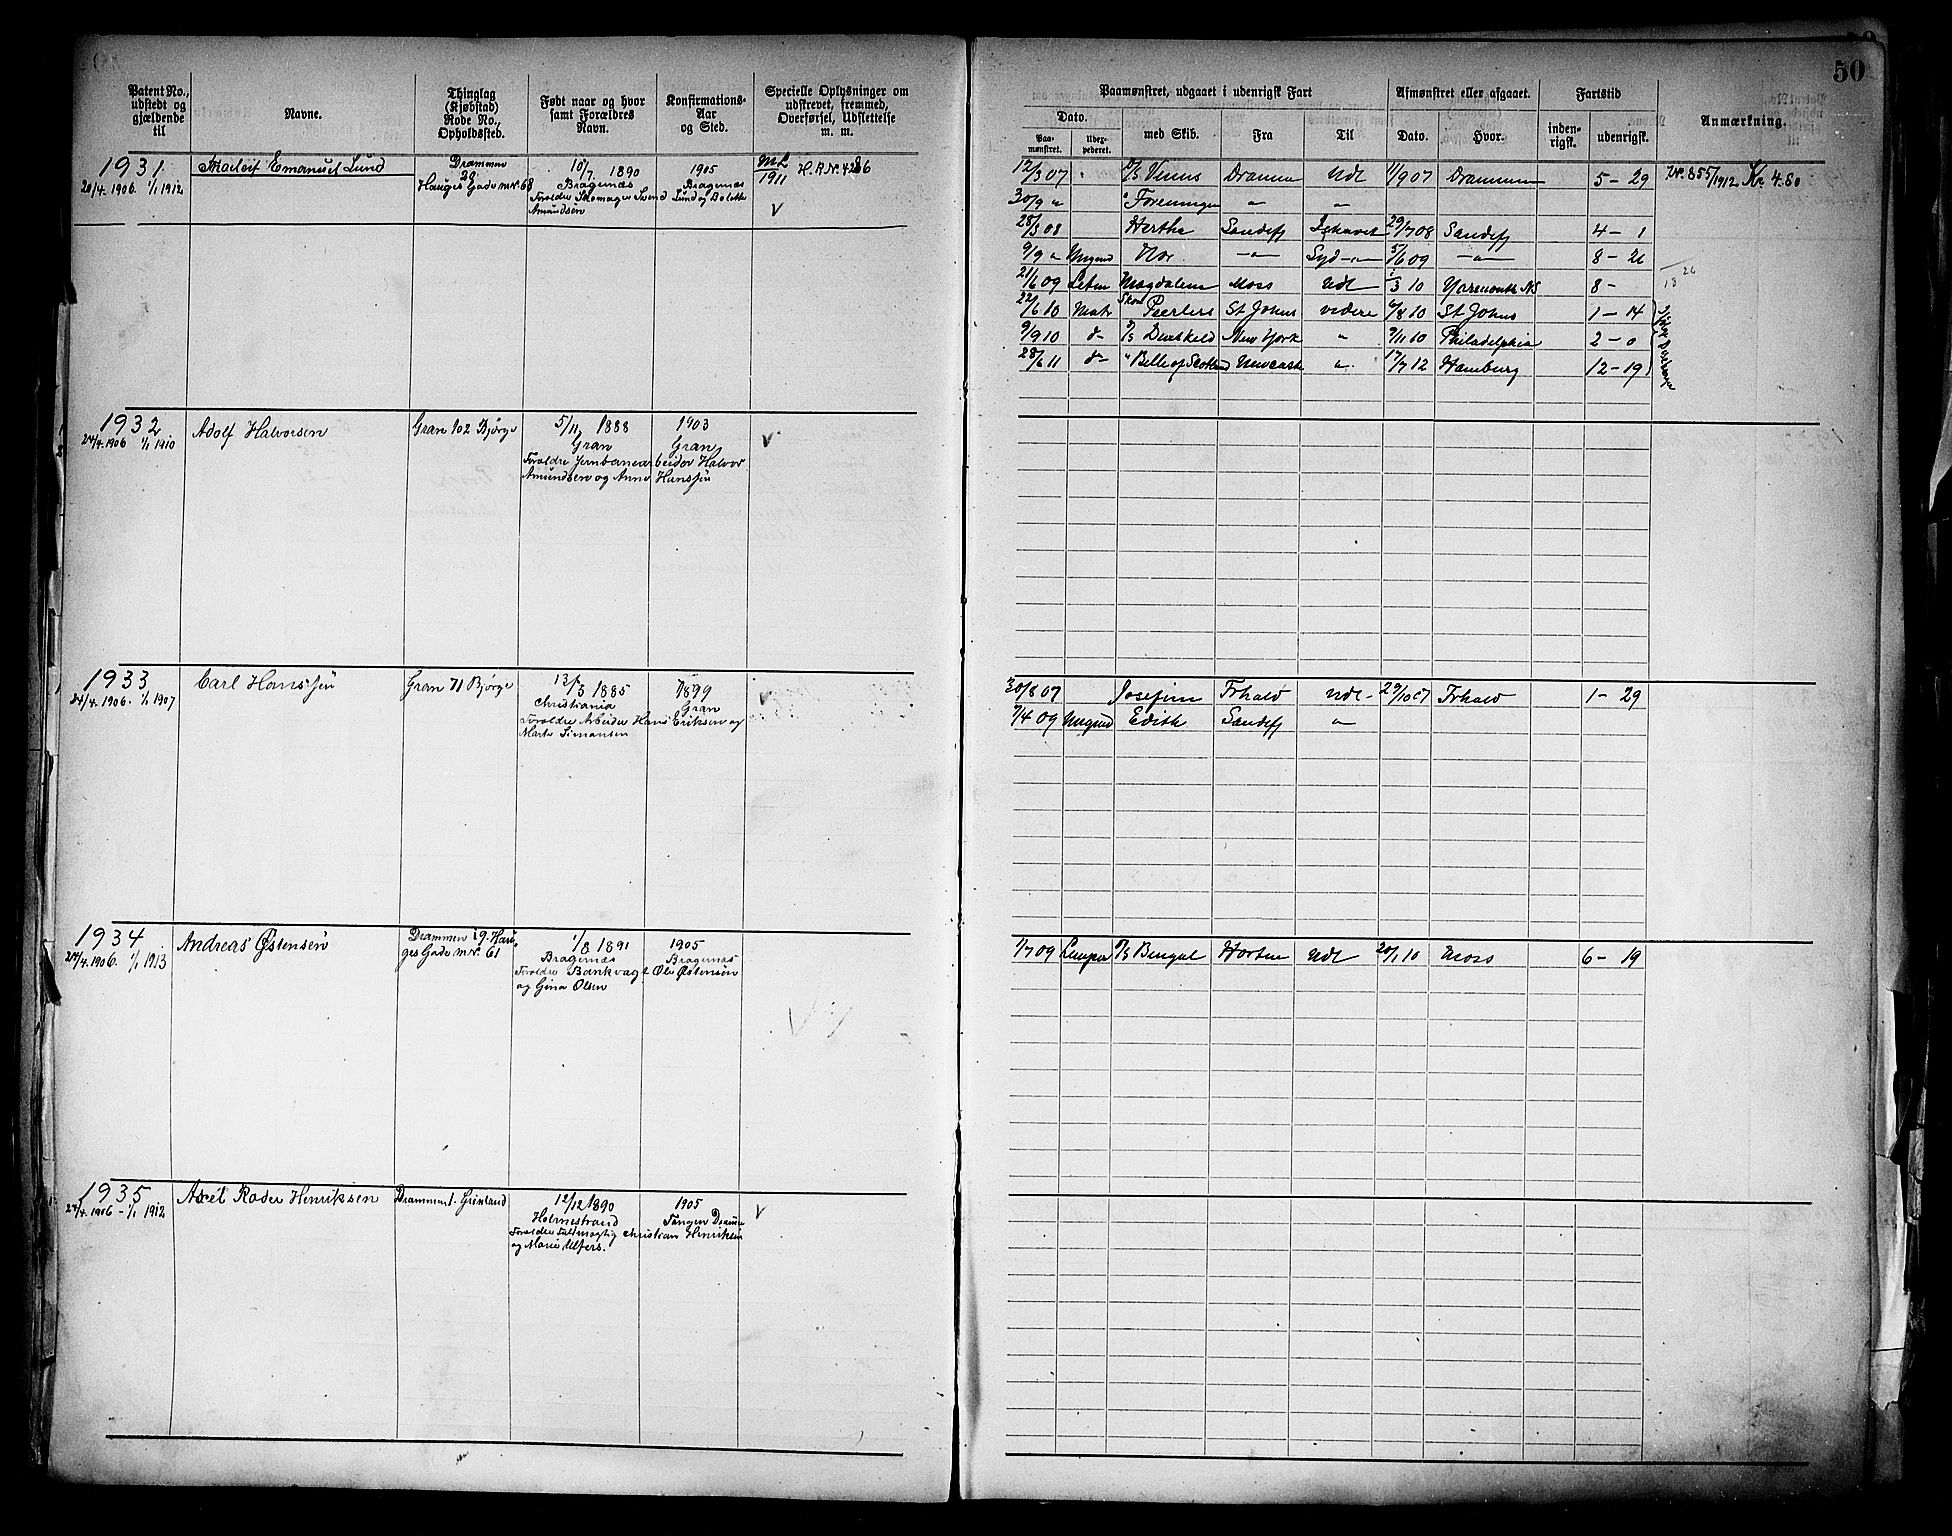 50
Patent No., udstedt og gjældende til
Navne.
Thinglag (Kjøbstad) Rode No., Opholdssted.
Født naar og hvor samt Forældres Navn.
Konfirmations- Aar og Sted.
Specielle Oplysninger om udskrevet, fremmed, Overførsel, Udslettelse m. m.
Paamønstret, udgaaet i udenrigsk Fart
Dato.
Paa- mønstret.
med Skib.
Fra
Til
Afmønstret eller afgaaet.
Dato.
Hvor.
Fartstid
inden- rigsk.
udenrigsk.
Anmærkning.
1931
20/4. 1906. 1/1 1912
Emanuel Lund
Drammen 28.
Hauges Gade mNr. 68
10/7. 1890
Bragernæs
1905
Bragernæs
Forældre Skomager Svend Lund og
Amundsen
ML
1911
H.R.Nr. 4286
V
12/3 07 D/S Venus Dramn Udl 11/9 07 Drammen 5-29
Nr. 855/1912 Kr. 4.80
30/9 " " Foreningen " "
28/3 08 Hertha Sandefj Ishavet 29/7 08 Sandefj 4-1
9/9 " Ungmd Nor. -"- Syd-"- 5/6 09 -"- 8-26
21/6 09 Letm Magdalene Moss Udl 3 10 Yarmouth NS 8-
22/6 10 Matr Skon Peerless St Johns videre 6/8 10 St Johns 1-14
9/9 10 d- New York " 9/11 10 Philadelphia 2-0
28/6 11 d- " Belle of Scotland Newcastle ". 17/7 12 Hamburg 12-19
13 26
1932
24/4. 1906 1/1 1910
Adolf Halvorsen
Gran 102 Bjørge
5/11 1888
Gran
1903
Gran
Forældre Jernbanearbeider Halvor
Amundsen og Anne Hanssen
V
1933
24/4. 1906. 1/1 1907
Carl Hanssen
Gran 71 Bjørge
13/3 1885
Christiania
1899
Gran
Forældre Arbeider Hans Eriksen og
Marte Simonsen
V
30/8 07 Josefine Frhald Udl- 29/10 07 Frhald 1-29
7/4 09 Ungmd Edith Sandefj "
1934
24/4. 1906. 1/1 1913
Andreas Østensen
Drammen 29. Hau-
ges Gade mNr. 61
1/8 1891
Bragernæs
1905
Bragernæs
Forældre Bankvagt Ole Østensen
og Gina Olsen
1/7 09 D/S Bengal Horten Udl 20/1 10 Moss 6-19
1935
24/4. 1906 - 1/1 1912
Axel Roder Henriksen
Drammen 1. Grønland
12/12 1890
Holmestrand
1905
Tangen Dramm
Forældre Fuldmægtig Christian Henriksen
og Marie Ulfers.
V